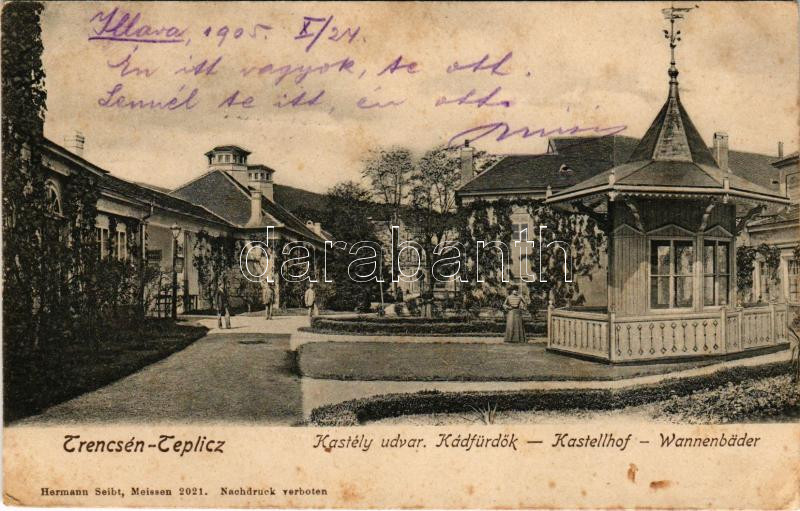 Illava, 1905. X/24.
Én itt vagyok, te ott.
Lennél te itt, én ott
darabanth.com
Trencsén-Teplicz
Kastély udvar. Kádfürdők — Kastellhof — Wannenbäder
Hermann Seibt, Meissen 2021. Nachdruck verboten